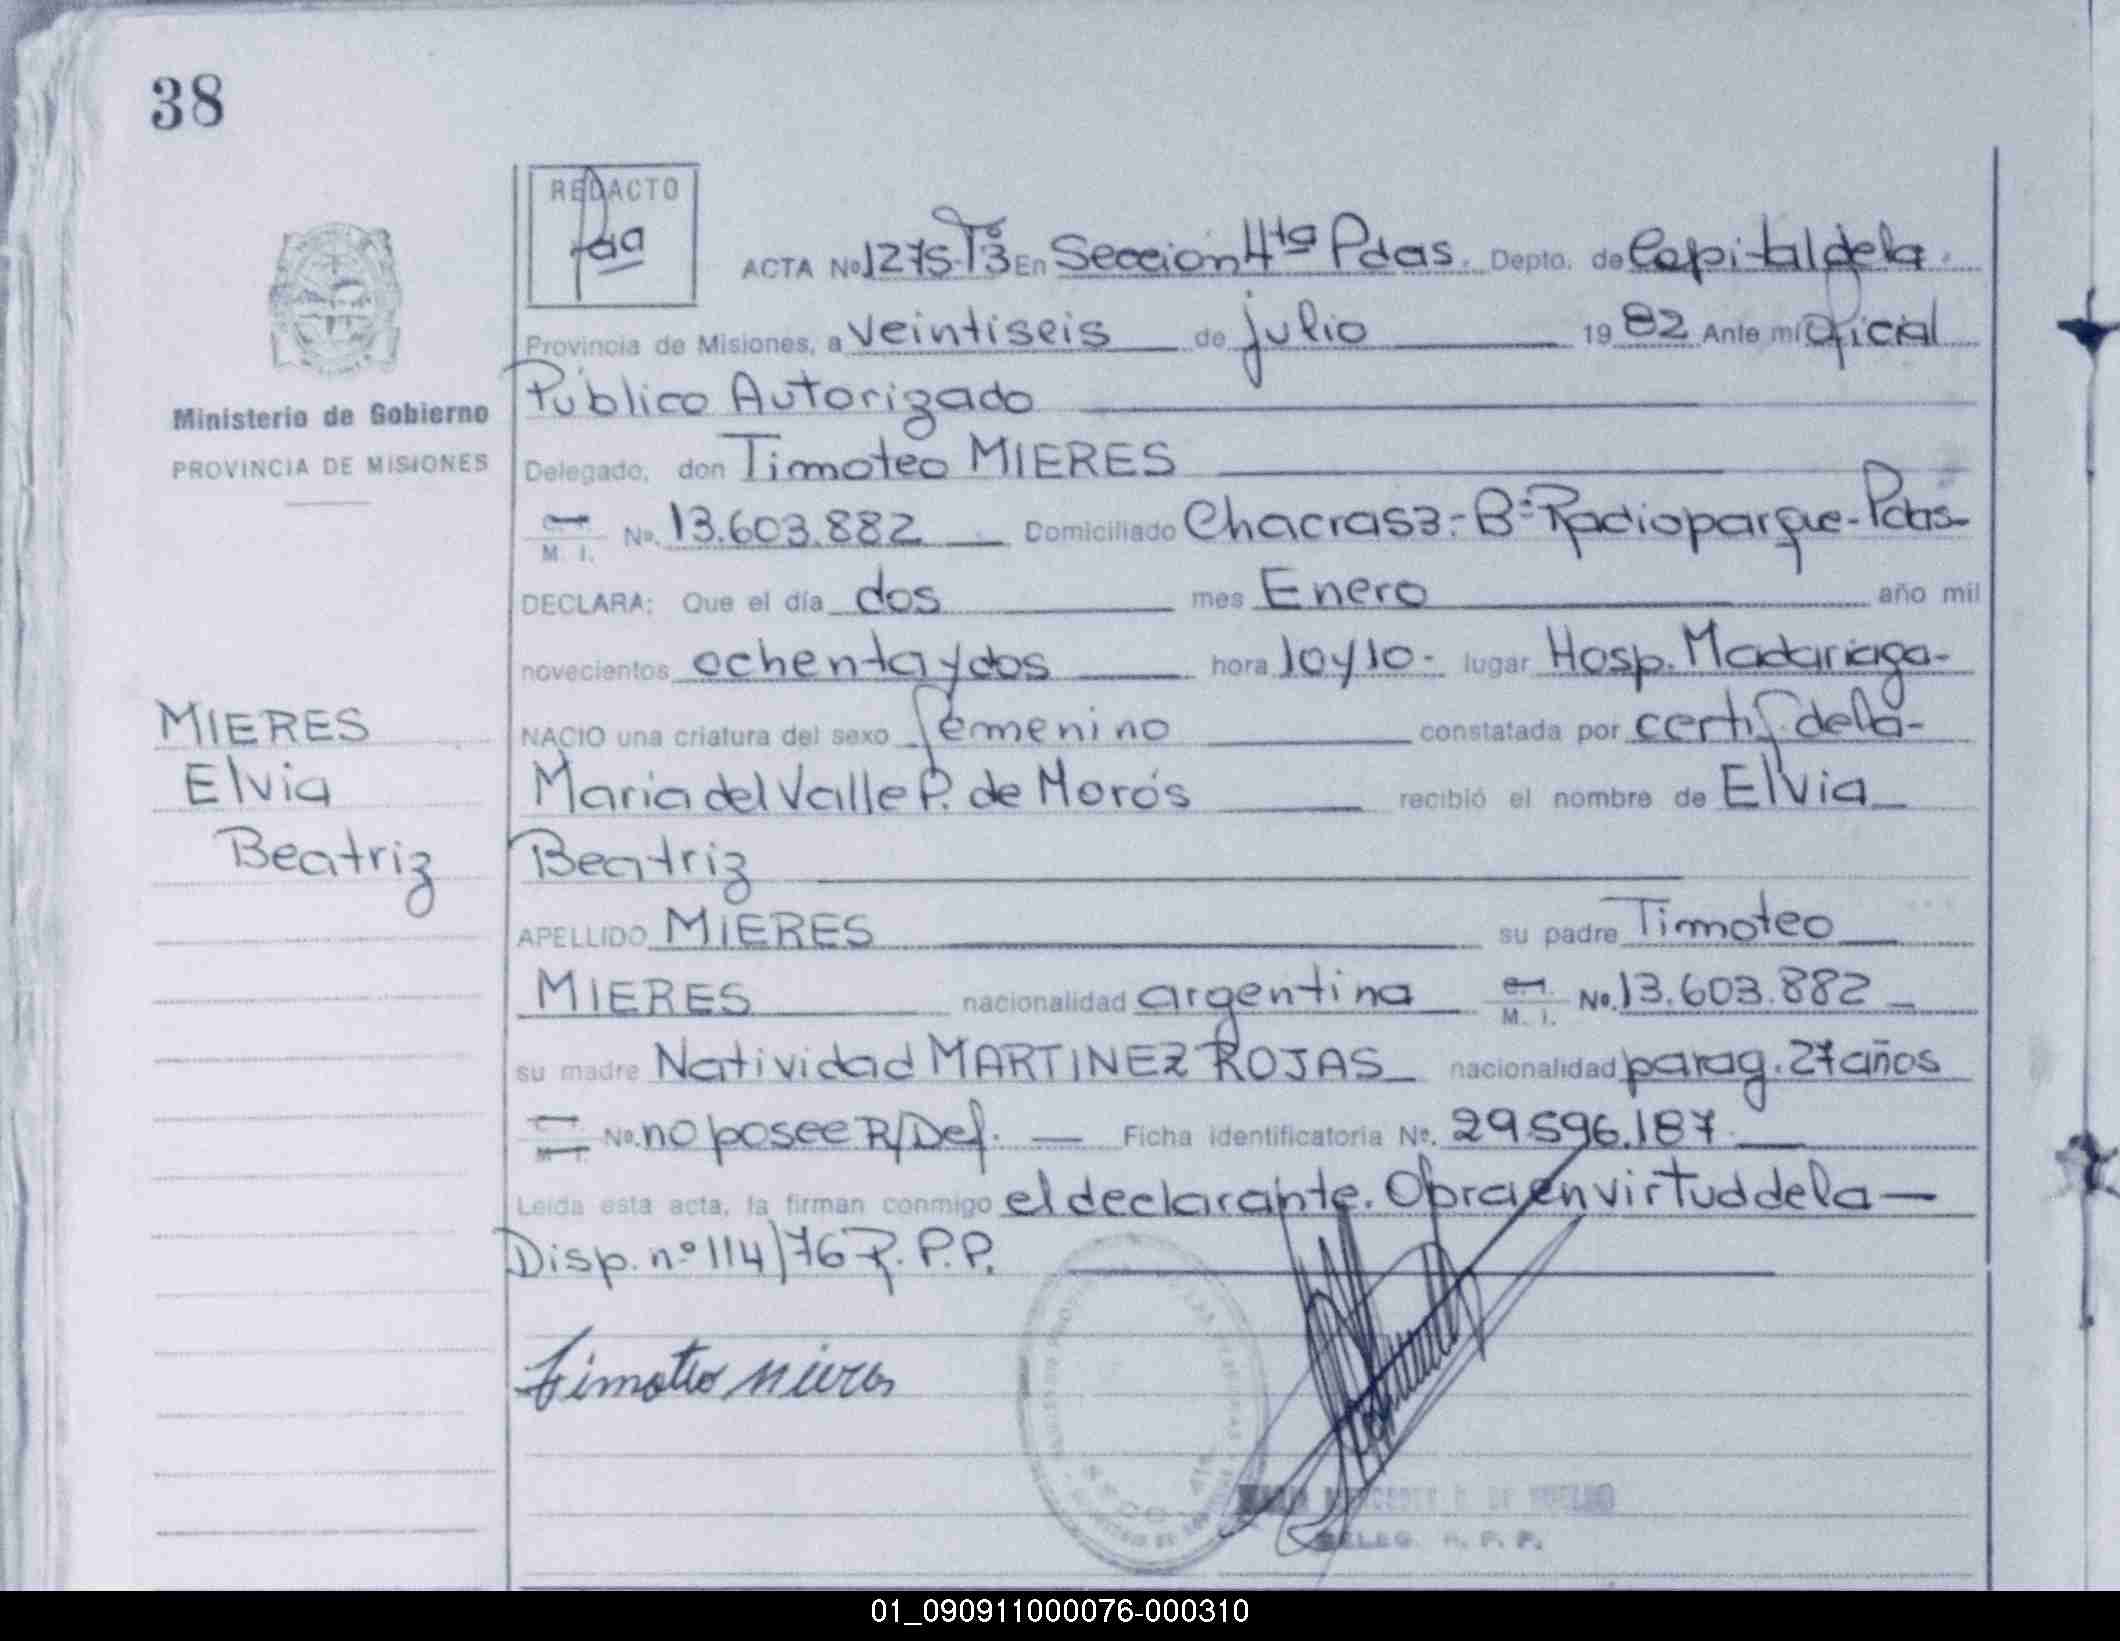 38
REDACTO
ACTA No 1275-Tº3 En Sección 4ta Pdas. Depto. de Capital de la
Provincia de Misiones, a veintiseis de julio 19 82 Ante mi Oficial
Público Autorizado
Ministerio de Gobierno
PROVINCIA DE MISIONES
Delegado, don Timoteo MIERES
M. I. No. 13.603.882 Domiciliado Chacra 53.- Bº Radioparque - Pdas-
DECLARA: Que el día dos mes Enero año mil
novecientos ochenta y dos hora 10 y 10. lugar Hosp. Madariaga-
MIERES
Elvia
Beatriz
NACIO una criatura del sexo femenino constatada por certif. de la-
Maria del Valle P. de Morós recibió el nombre de Elvia
Beatriz
APELLIDO MIERES su padre Timoteo
MIERES nacionalidad argentina M. I. No. 13.603.882
su madre Natividad MARTINEZ ROJAS nacionalidad parag. 27 años
M. I. No. no posee R/Def. Ficha identificatoria No. 29.596.187
Leída esta acta, la firman conmigo el declarante. Obra en virtud de la
Disp. nº 114/76 R. P. P.
Timoteo Mieres
DELEG. R. P. P.
01_090911000076-000310